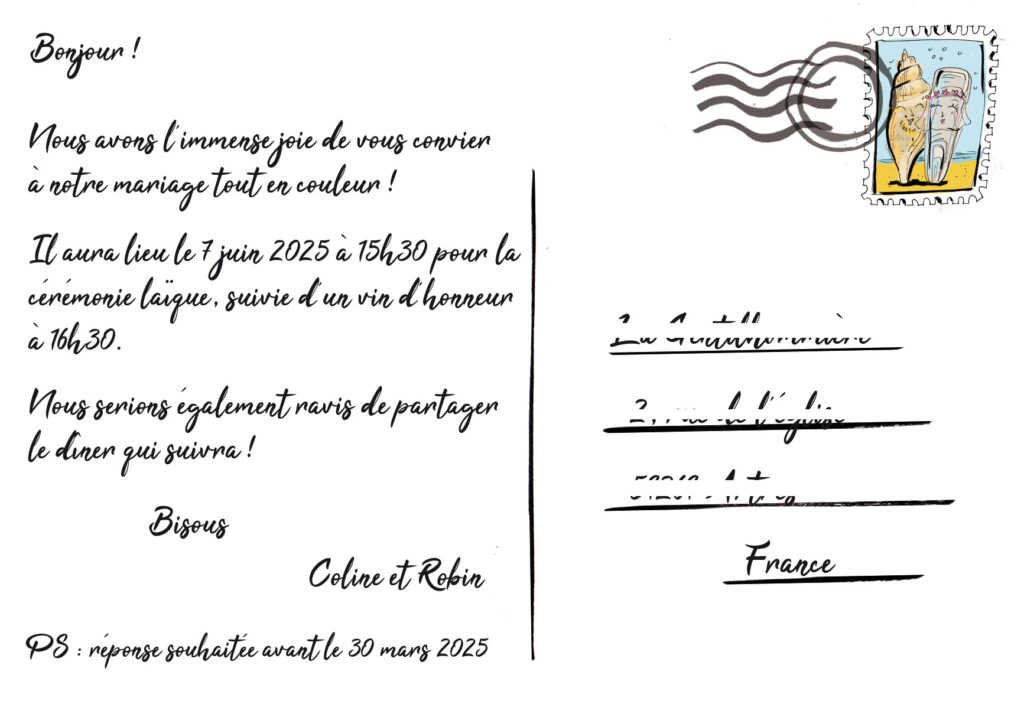 Bonjour !
Nous avons l'immense joie de vous convier
à notre mariage tout en couleur !
Il aura lieu le 7 juin 2025 à 15h30 pour la
cérémonie laïque, suivie d'un vin d'honneur
à 16h30.
Nous serions également ravis de partager
le dîner qui suivra !
Bisous
Coline et Robin
PS : réponse souhaitée avant le 30 mars 2025
La
de l'église
France